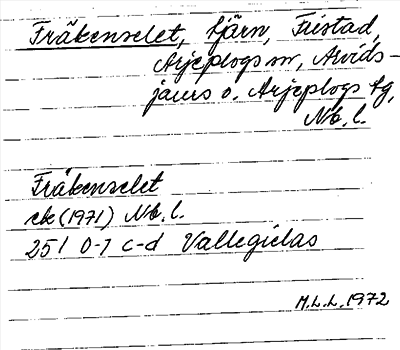 Fräkenselet, tjärn, Fristad,
Arjeplogs sn, Arvids-
jaurs o. Arjeplogs tg,
Nb. l.
Fräkenselet
ek (1971) Nb. l.
25 I 0-1 c-d Vallegielas
M.L.L. 1972